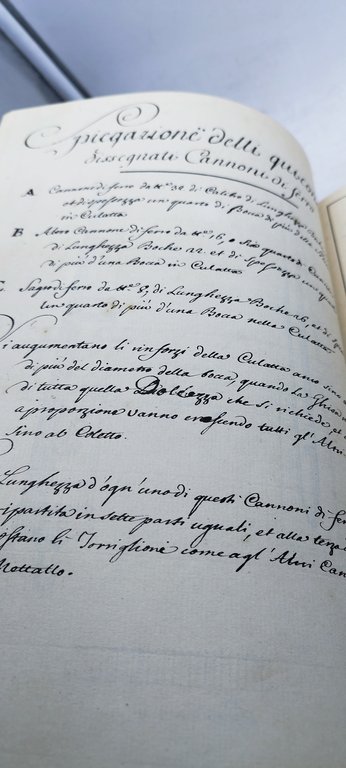 Spiegazione delli qui con
dissegnati Cannoni di ferro
A Cannon di ferro da tt.º 30 di Calibo di Lunghezza
et di spessezza un quarto di bocca di più della
in Culatta
B Altro Cannone di ferro da tt.º 6, o sia quarto di
di Lunghezza Boche 22. et di spessezza un qua
di più d'una Bocca in Culatta
C. Sagro di ferro da tt.º 8, di Lunghezza Boche 26, et di
un quarto di più d'una Bocca nella Culatta
Si augumentano li rinforzi della Culatta
di più del diametro della bocca, quando la Ghisa
di tutta quella Dolcezza che si richiede, et
a proporzione vanno cresendo tutti gl'Altri
sino al Coletto.
Lunghezza d'ogn'uno di questi Cannoni di fer
ripartita in sette parti uguali, et alla terza
ostano li Torriglioni come agl'Altri Can
Mettallo.